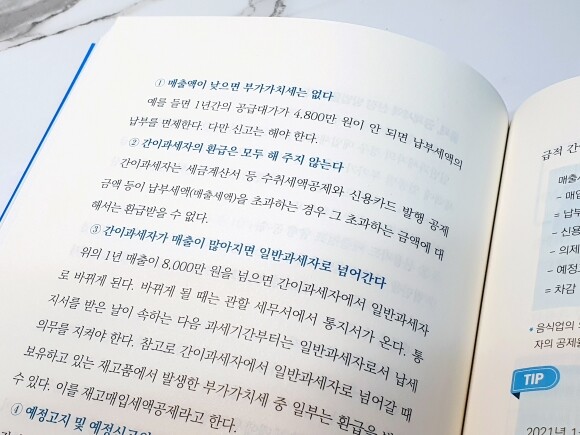 ① 매출액이 낮으면 부가가치세는 없다
예를 들면 1년간의 공급대가가 4,800만 원이 안 되면 납부세액의
납부를 면제한다. 다만 신고는 해야 한다.
② 간이과세자의 환급은 모두 해 주지 않는다
간이과세자는 세금계산서 등 수취세액공제와 신용카드 발행 공제
금액 등이 납부세액(매출세액)을 초과하는 경우 그 초과하는 금액에 대
해서는 환급받을 수 없다.
③ 간이과세자가 매출이 많아지면 일반과세자로 넘어간다
위의 1년 매출이 8,000만 원을 넘으면 간이과세자에서 일반과세자
로 바뀌게 된다. 바뀌게 될 때는 관할 세무서에서 통지서가 온다. 통
지서를 받은 날이 속하는 다음 과세기간부터는 일반과세자로서 납세
의무를 지켜야 한다. 참고로 간이과세자에서 일반과세자로 넘어갈 때
보유하고 있는 재고품에서 발생한 부가가치세 중 일부는 환급을 받
수 있다. 이를 재고매입세액공제라고 한다.
④ 예정고지 및 예정신고
급적 간
매출
- 매입
= 납부
- 신용
- 의제
- 예정
= 차감
• 음식업의
자의 공제율
TIP
2021년 1